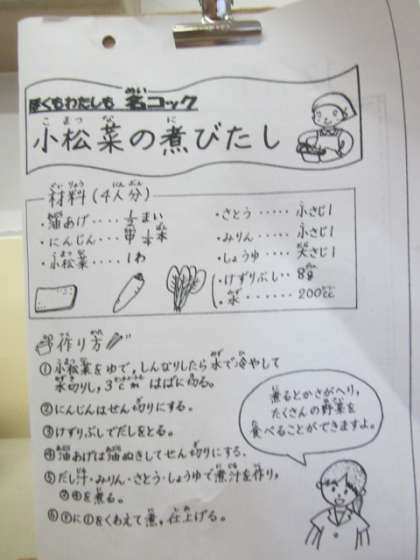 ぼくもわたしも 名コック
小松菜の煮びたし
材料(4人分)
・油あげ‥‥ 1/2まい
・にんじん‥‥ 中1/4本
・小松菜‥‥ 1わ
・さとう‥‥‥ 小さじ1
・みりん‥‥‥ 小さじ1
・しょうゆ‥‥ 大さじ1
・けずりぶし‥‥ 8g
・水‥‥‥‥ 200cc
作り方
①小松菜をゆで,しんなりしたら水で冷やして
水切りし,3cmはばに切る。
②にんじんはせん切りにする。
③けずりぶしでだしをとる。
④油あげは油ぬきしてせん切りにする.
⑤だし汁・みりん・さとう・しょうゆで煮汁を作り,
②④を煮る。
⑥⑤に①をくわえて煮,仕上げる。
煮るとかさがへり,
たくさんの野菜を
食べることができますよ。